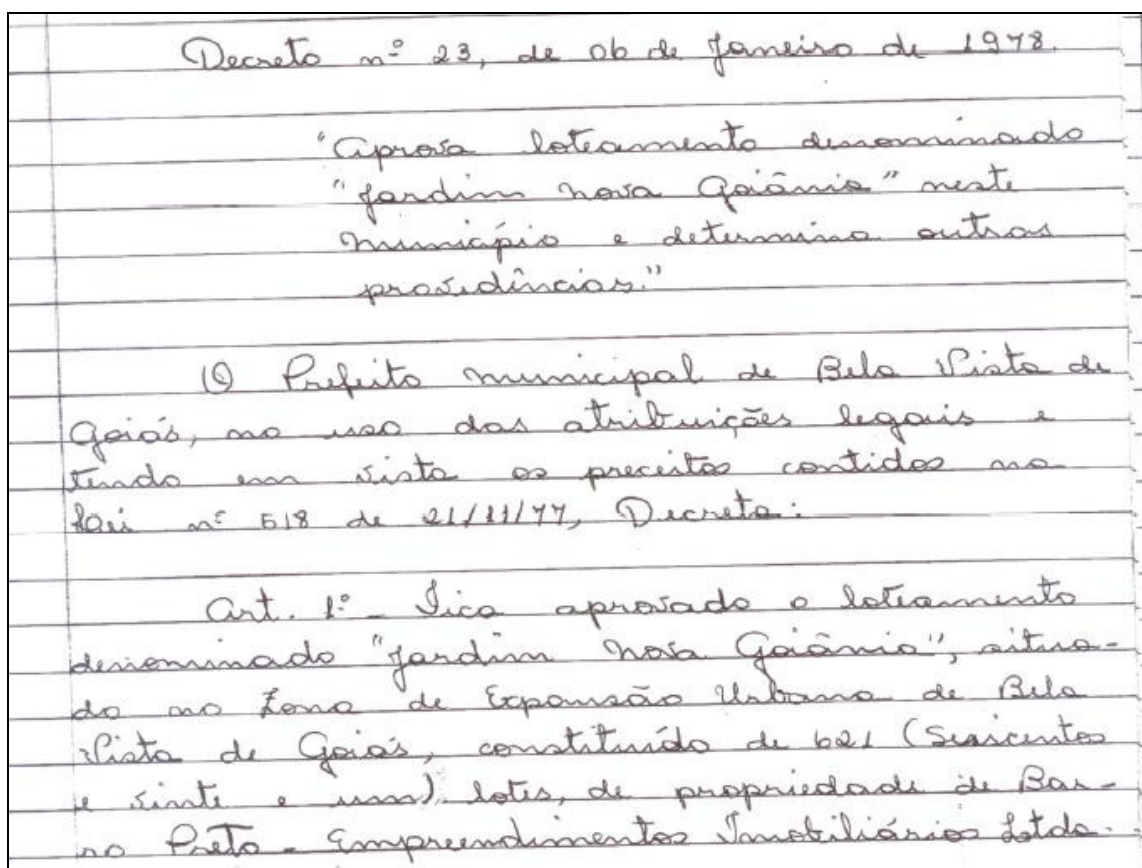 Decreto nº 23, de 06 de Janeiro de 1978.
"Aprova loteamento denominado
"Jardim Nova Goiânia" neste
município e determina outras
providências."
O Prefeito Municipal de Bela Vista de
Goiás, no uso das atribuições legais e
tendo em vista os preceitos contidos na
Lei nº 518 de 21/11/77, Decreta:
Art. 1º - Fica aprovado o loteamento
denominado "Jardim Nova Goiânia", situa-
do na Zona de Expansão Urbana de Bela
Vista de Goiás, constituído de 621 (Seiscentos
e vinte e um) lotes, de propriedade de Bar-
ro Preto - Empreendimentos Imobiliários Ltda.